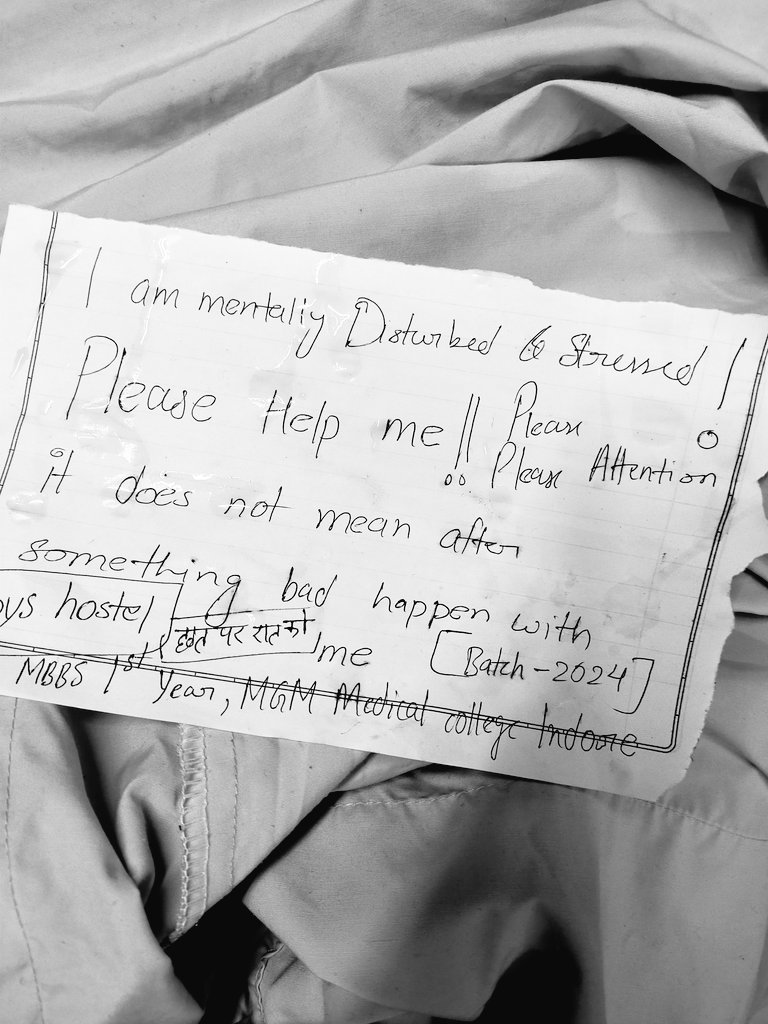 I am mentally Disturbed & Stressed !
Please Help me !! Please
Please Attention
it does not mean after
something bad happen with
me [Batch-2024]
ys hostel
छत पर रात को
MBBS 1st Year, MGM Medical college Indore